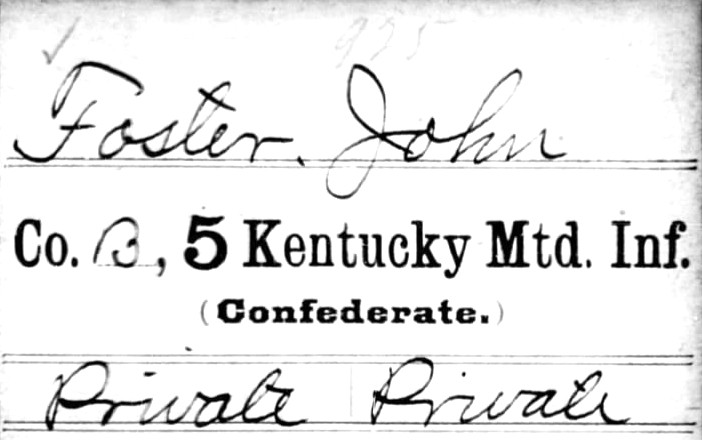 Foster, John
Co. B, 5 Kentucky Mtd. Inf.
(Confederate.)
Private Private